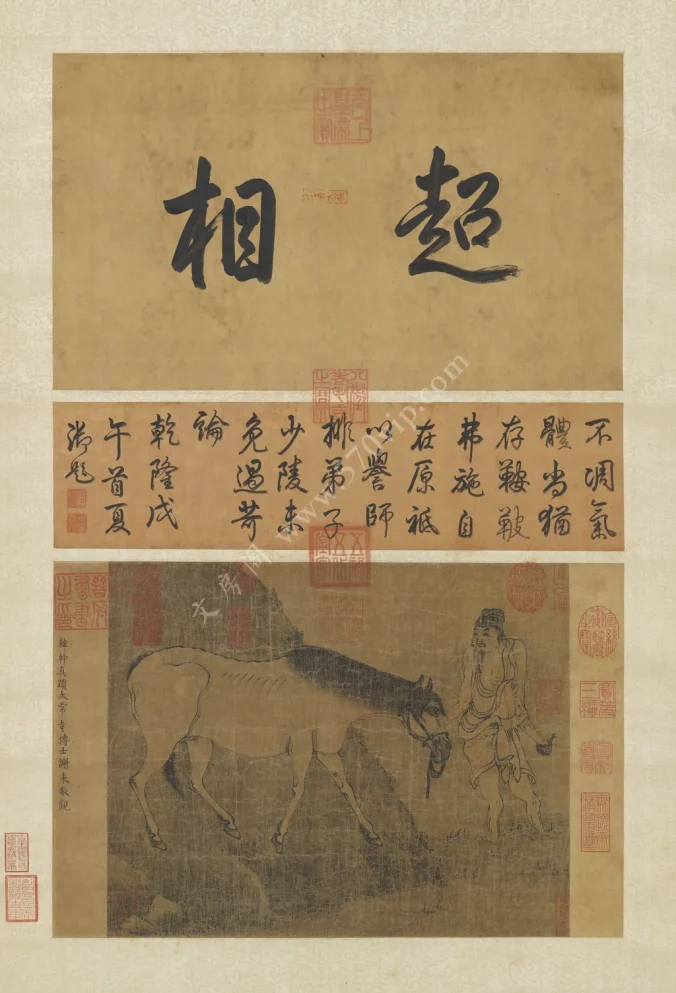 超相
不凋氣
體尚猶
存鞍鞁
弗施自
在原祗
以譽師
排弟子
少陵未
免過苛
論
乾隆戊
午首夏
御題
韓幹真蹟太常寺博士謝
晉府書畫之印
文房阁